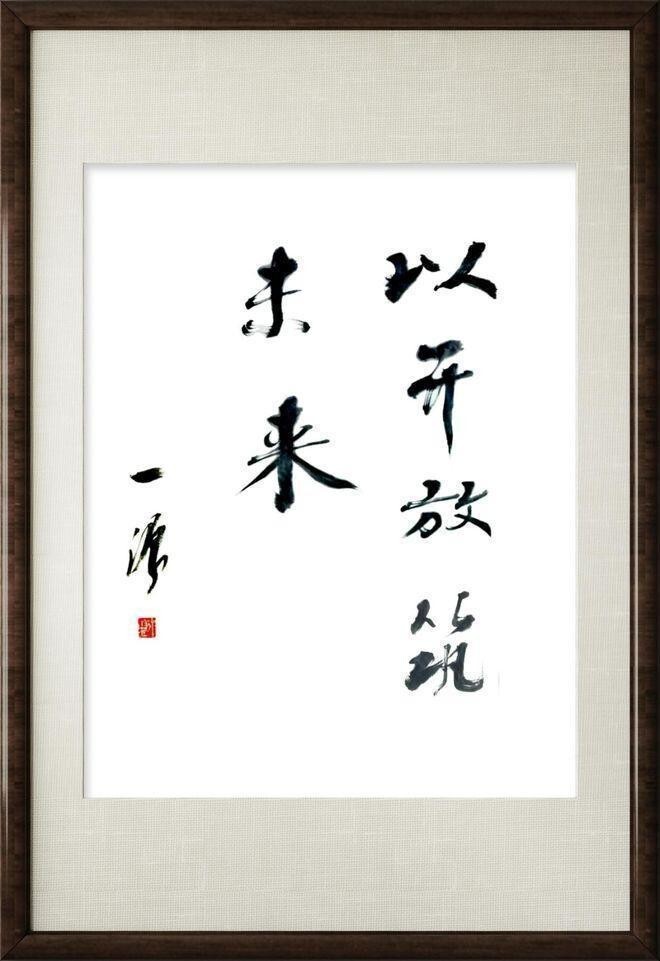 以开放筑
未来
一源